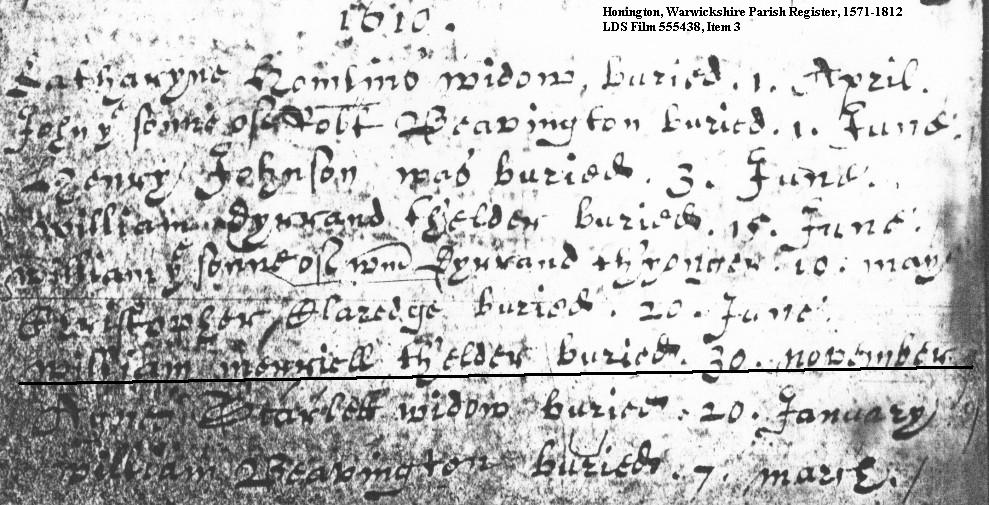 Honington, Warwickshire Parish Register, 1571-1812
LDS Film 555438, Item 3
1610.
Catharyne widow, buried. 1. April.
John yͤ sonne of Robt Beavington buried. 1. June.
Henry Johnson was buried. 3. June.
William Dyrrand th'elder buried. 15. June.
William yͤ sonne of Wm Dyrrand th'yonger. 10. may
Christopher Claredge buried. 20. June.
William Merriell th'elder buried. 30. November.
Agnes widow buried. 20. January
William Beavington buried. 7. march.